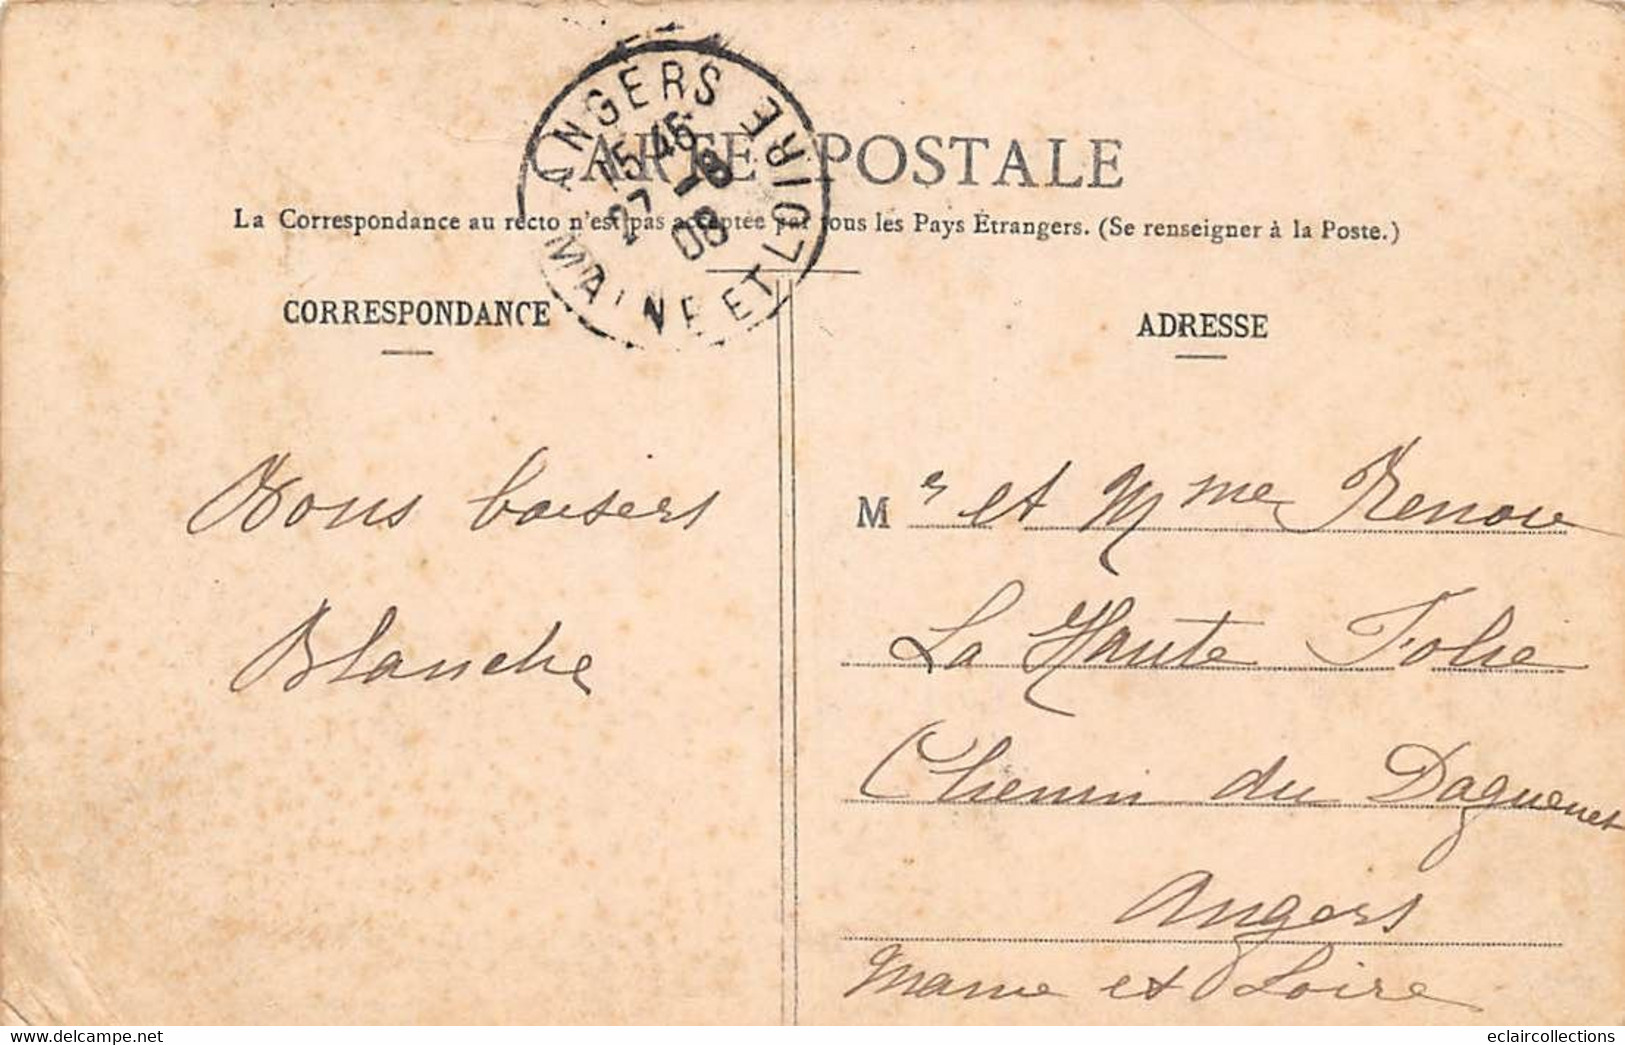 CARTE POSTALE
La Correspondance au recto n'est pas acceptée par tous les Pays Étrangers. (Se renseigner à la Poste.)
ANGERS
15 45
27 -8
08
MAINE ET LOIRE
CORRESPONDANCE
baisers
Blanche
ADRESSE
Mr et Mme Renou
La Haute Folie
Chemin du Daguenet
Angers
Maine et Loire
www.delcampe.net
eclaircollections